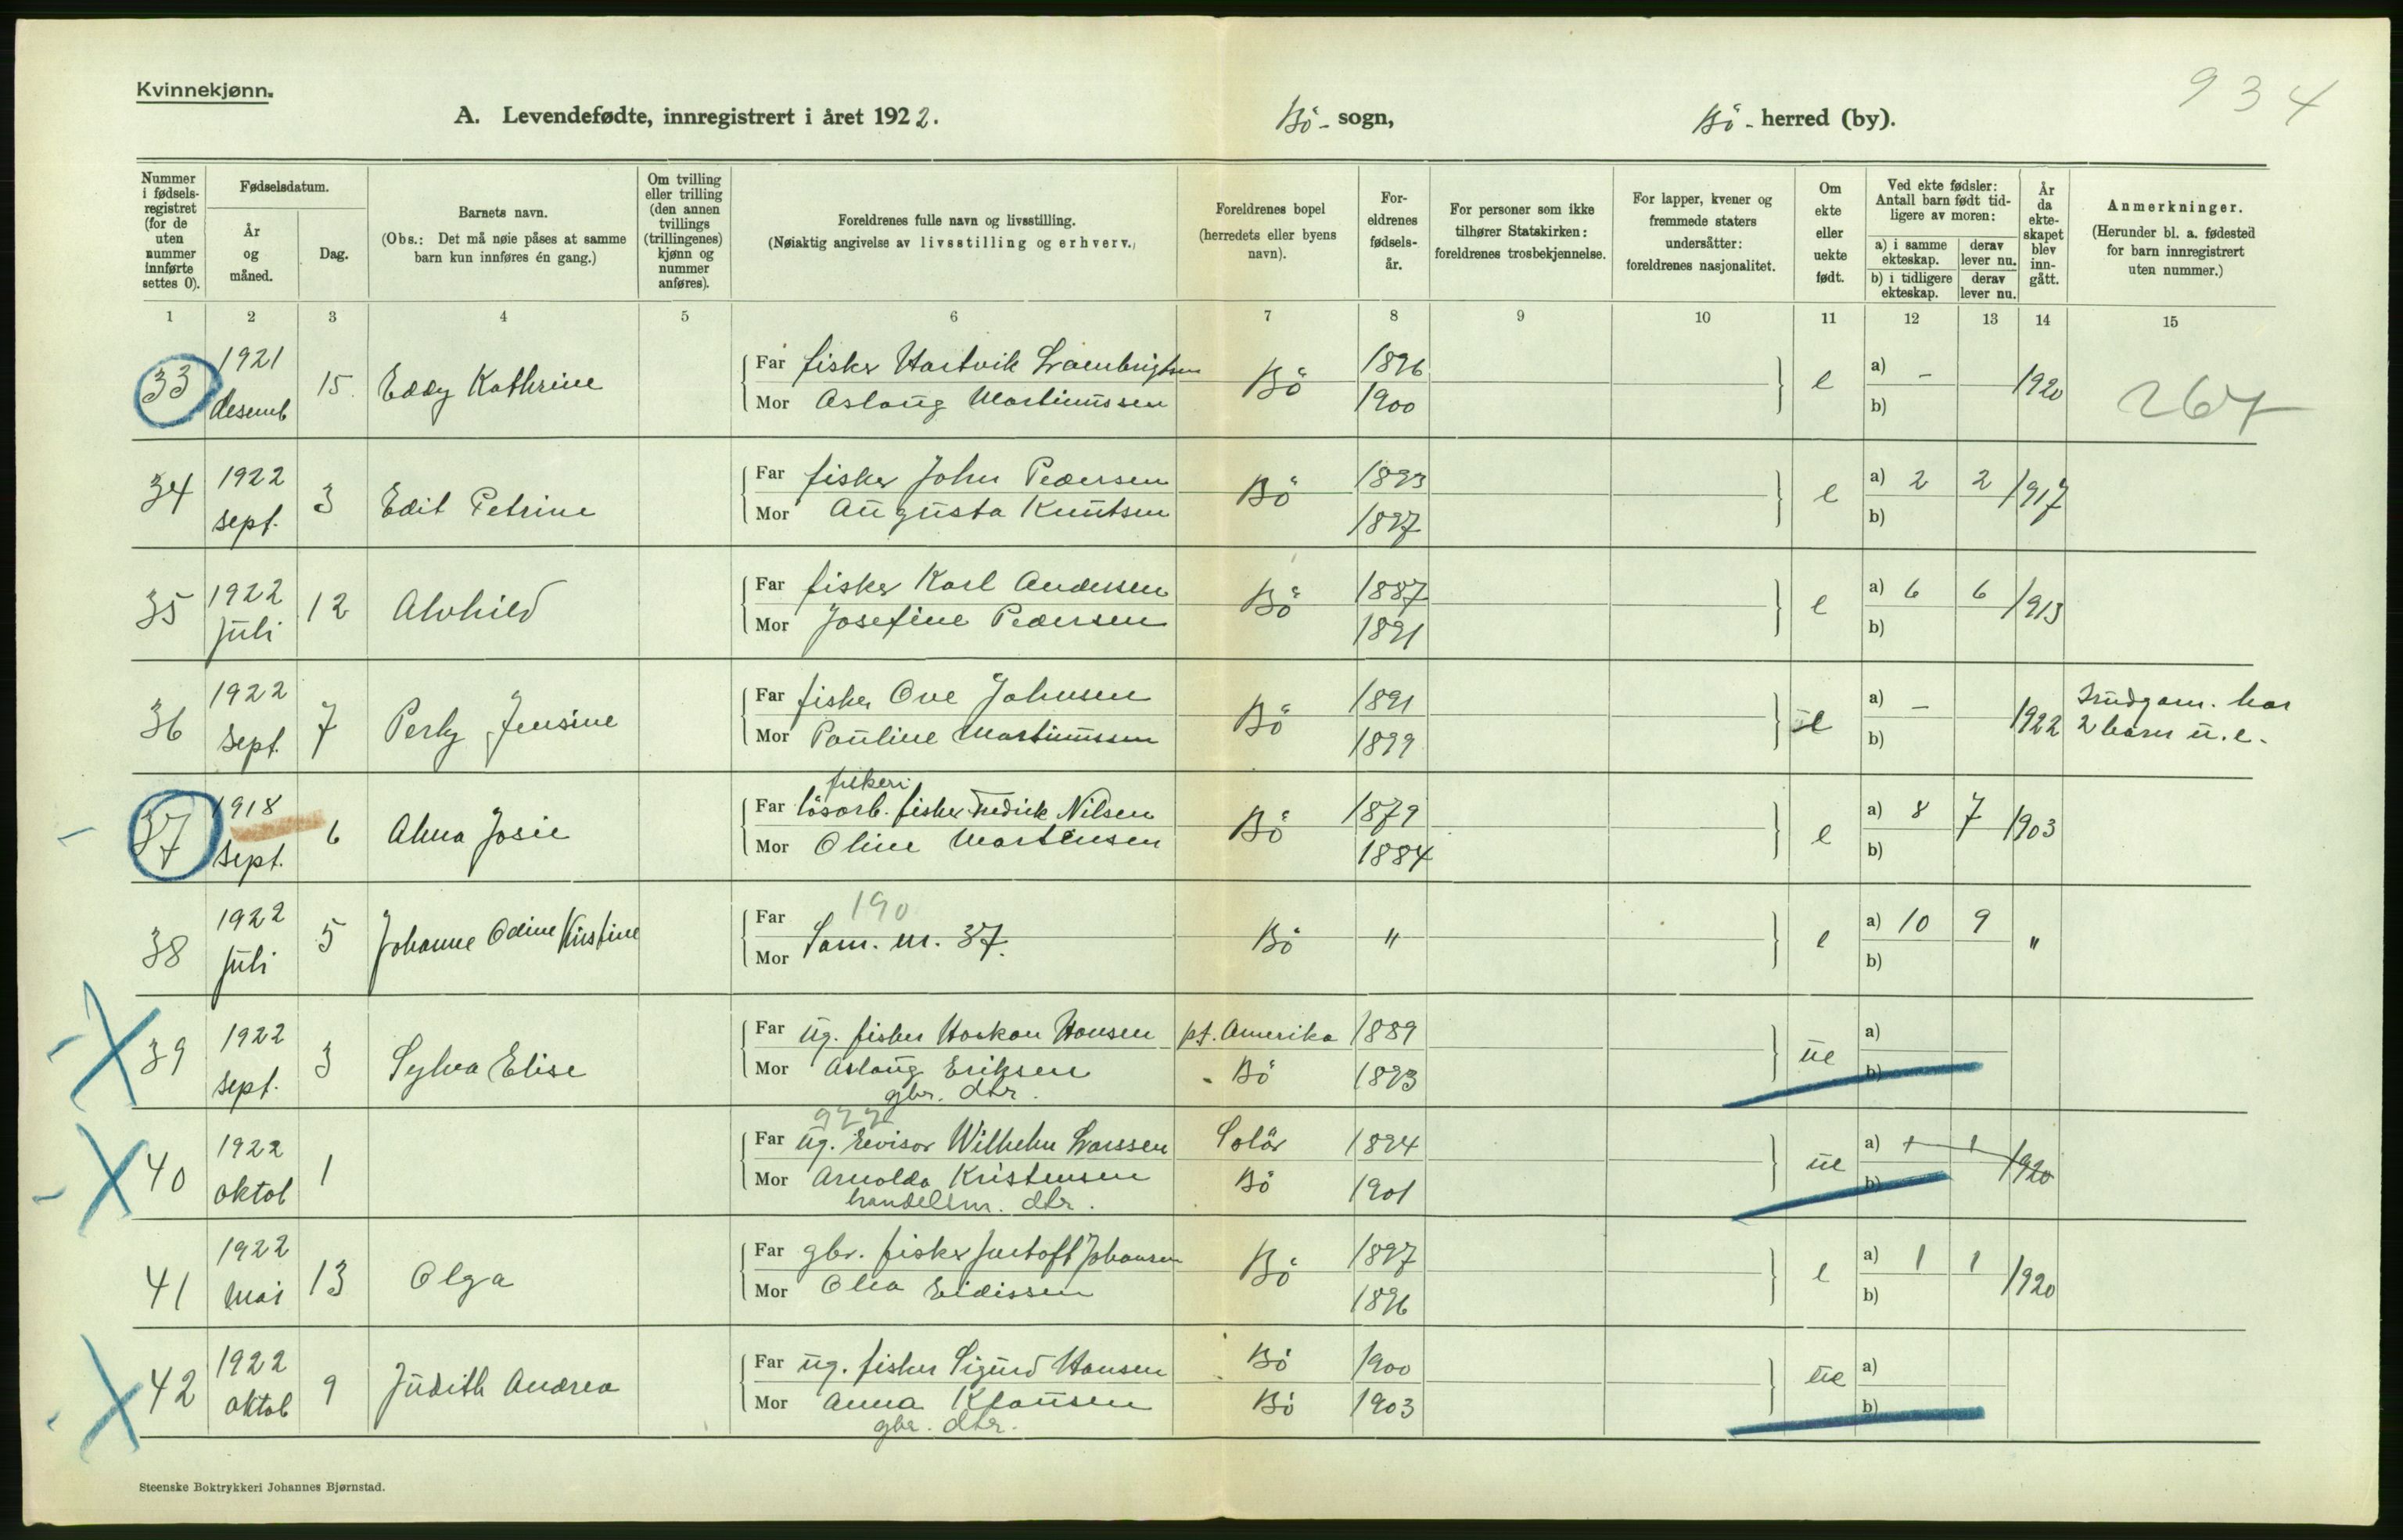 Kvinnekjønn.
934
A. Levendefødte, innregistrert i året 1922. Bö - sogn, Bö - herred (by).
Nummer i fødselsregistret (for de uten nummer innførte settes 0).
Fødselsdatum.
År og måned.
Dag.
Barnets navn.
(Obs.: Det må nøie påses at samme barn kun innføres én gang.)
Om tvilling eller trilling (den annen tvillings (trillingenes) kjønn og nummer anføres).
Foreldrenes fulle navn og livsstilling.
(Nøiaktig angivelse av livsstilling og erhverv.)
Foreldrenes bopel (herredets eller byens navn).
Foreldrenes fødselsår.
For personer som ikke tilhører Statskirken: foreldrenes trosbekjennelse.
For lapper, kvener og fremmede staters undersåtter: foreldrenes nasjonalitet.
Om ekte eller uekte født.
Ved ekte fødsler: Antall barn født tidligere av moren:
a) i samme ekteskap. derav lever nu.
b) i tidligere ekteskap. derav lever nu.
År da ekteskapet blev inngått.
Anmerkninger.
(Herunder bl. a. fødested for barn innregistrert uten nummer.)
1 2 3 4 5 6 7 8 9 10 11 12 13 14 15
33 1921 desemb 15. Eddy Kathrine
Far fisker Hartvik Lambrigtsen Bö 1896 e a) - 1920 267
Mor Aslaug Martinussen 1900 b)
34 1922 sept. 3 Edit Petrine
Far fisker John Pedersen Bö 1893 e a) 2 2 1917
Mor Augusta Knutsen 1897 b)
35 1922 juli 12 Alvhild
Far fisker Karl Andersen Bö 1887 e a) 6 6 1913
Mor Josefine Pedersen 1891 b)
36 1922 sept. 7 Perly Jensine
Far fisker Ove Johnsen Bö 1891 e a) - 1922 2 barn u.e.
Mor Pauline Martinussen 1899 b)
37 1918 sept. 6 Alma Josie
fiskeri
Far lösarb. fisker Fredrik Nilsen Bö 1879 e a) 8 7 1903
Mor Oline Martensen 1884 b)
38 1922 juli 5 Johanne Odine Kristine
190
Far Sam. nr. 37. Bö " e a) 10 9 "
Mor b)
39 1922 sept. 3 Sylva Elise
Far ug. fisker Haakon Hansen pt. Amerika 1889 ue a)
Mor Aslaug Eriksen Bö 1893 b)
gbr. dtr.
40 1922 oktob 1
922
Far ug. Revisor Wilhelm Larssen Solör 1894 ue a) 1 1 1920
Mor Arnolda Kristensen Bö 1901 b)
handelsm. dtr.
41 1922 mai 13 Olga
Far gbr. fisker Johansen Bö 1897 e a) 1 1 1920
Mor Olea Eidissen 1896 b)
42 1922 oktob 9 Judith Andrea
Far ug. fisker Sigurd Hansen Bö 1900 ue a)
Mor Anna Klausen Bö 1903 b)
gbr. dtr.
Steenske Boktrykkeri Johannes Bjørnstad.